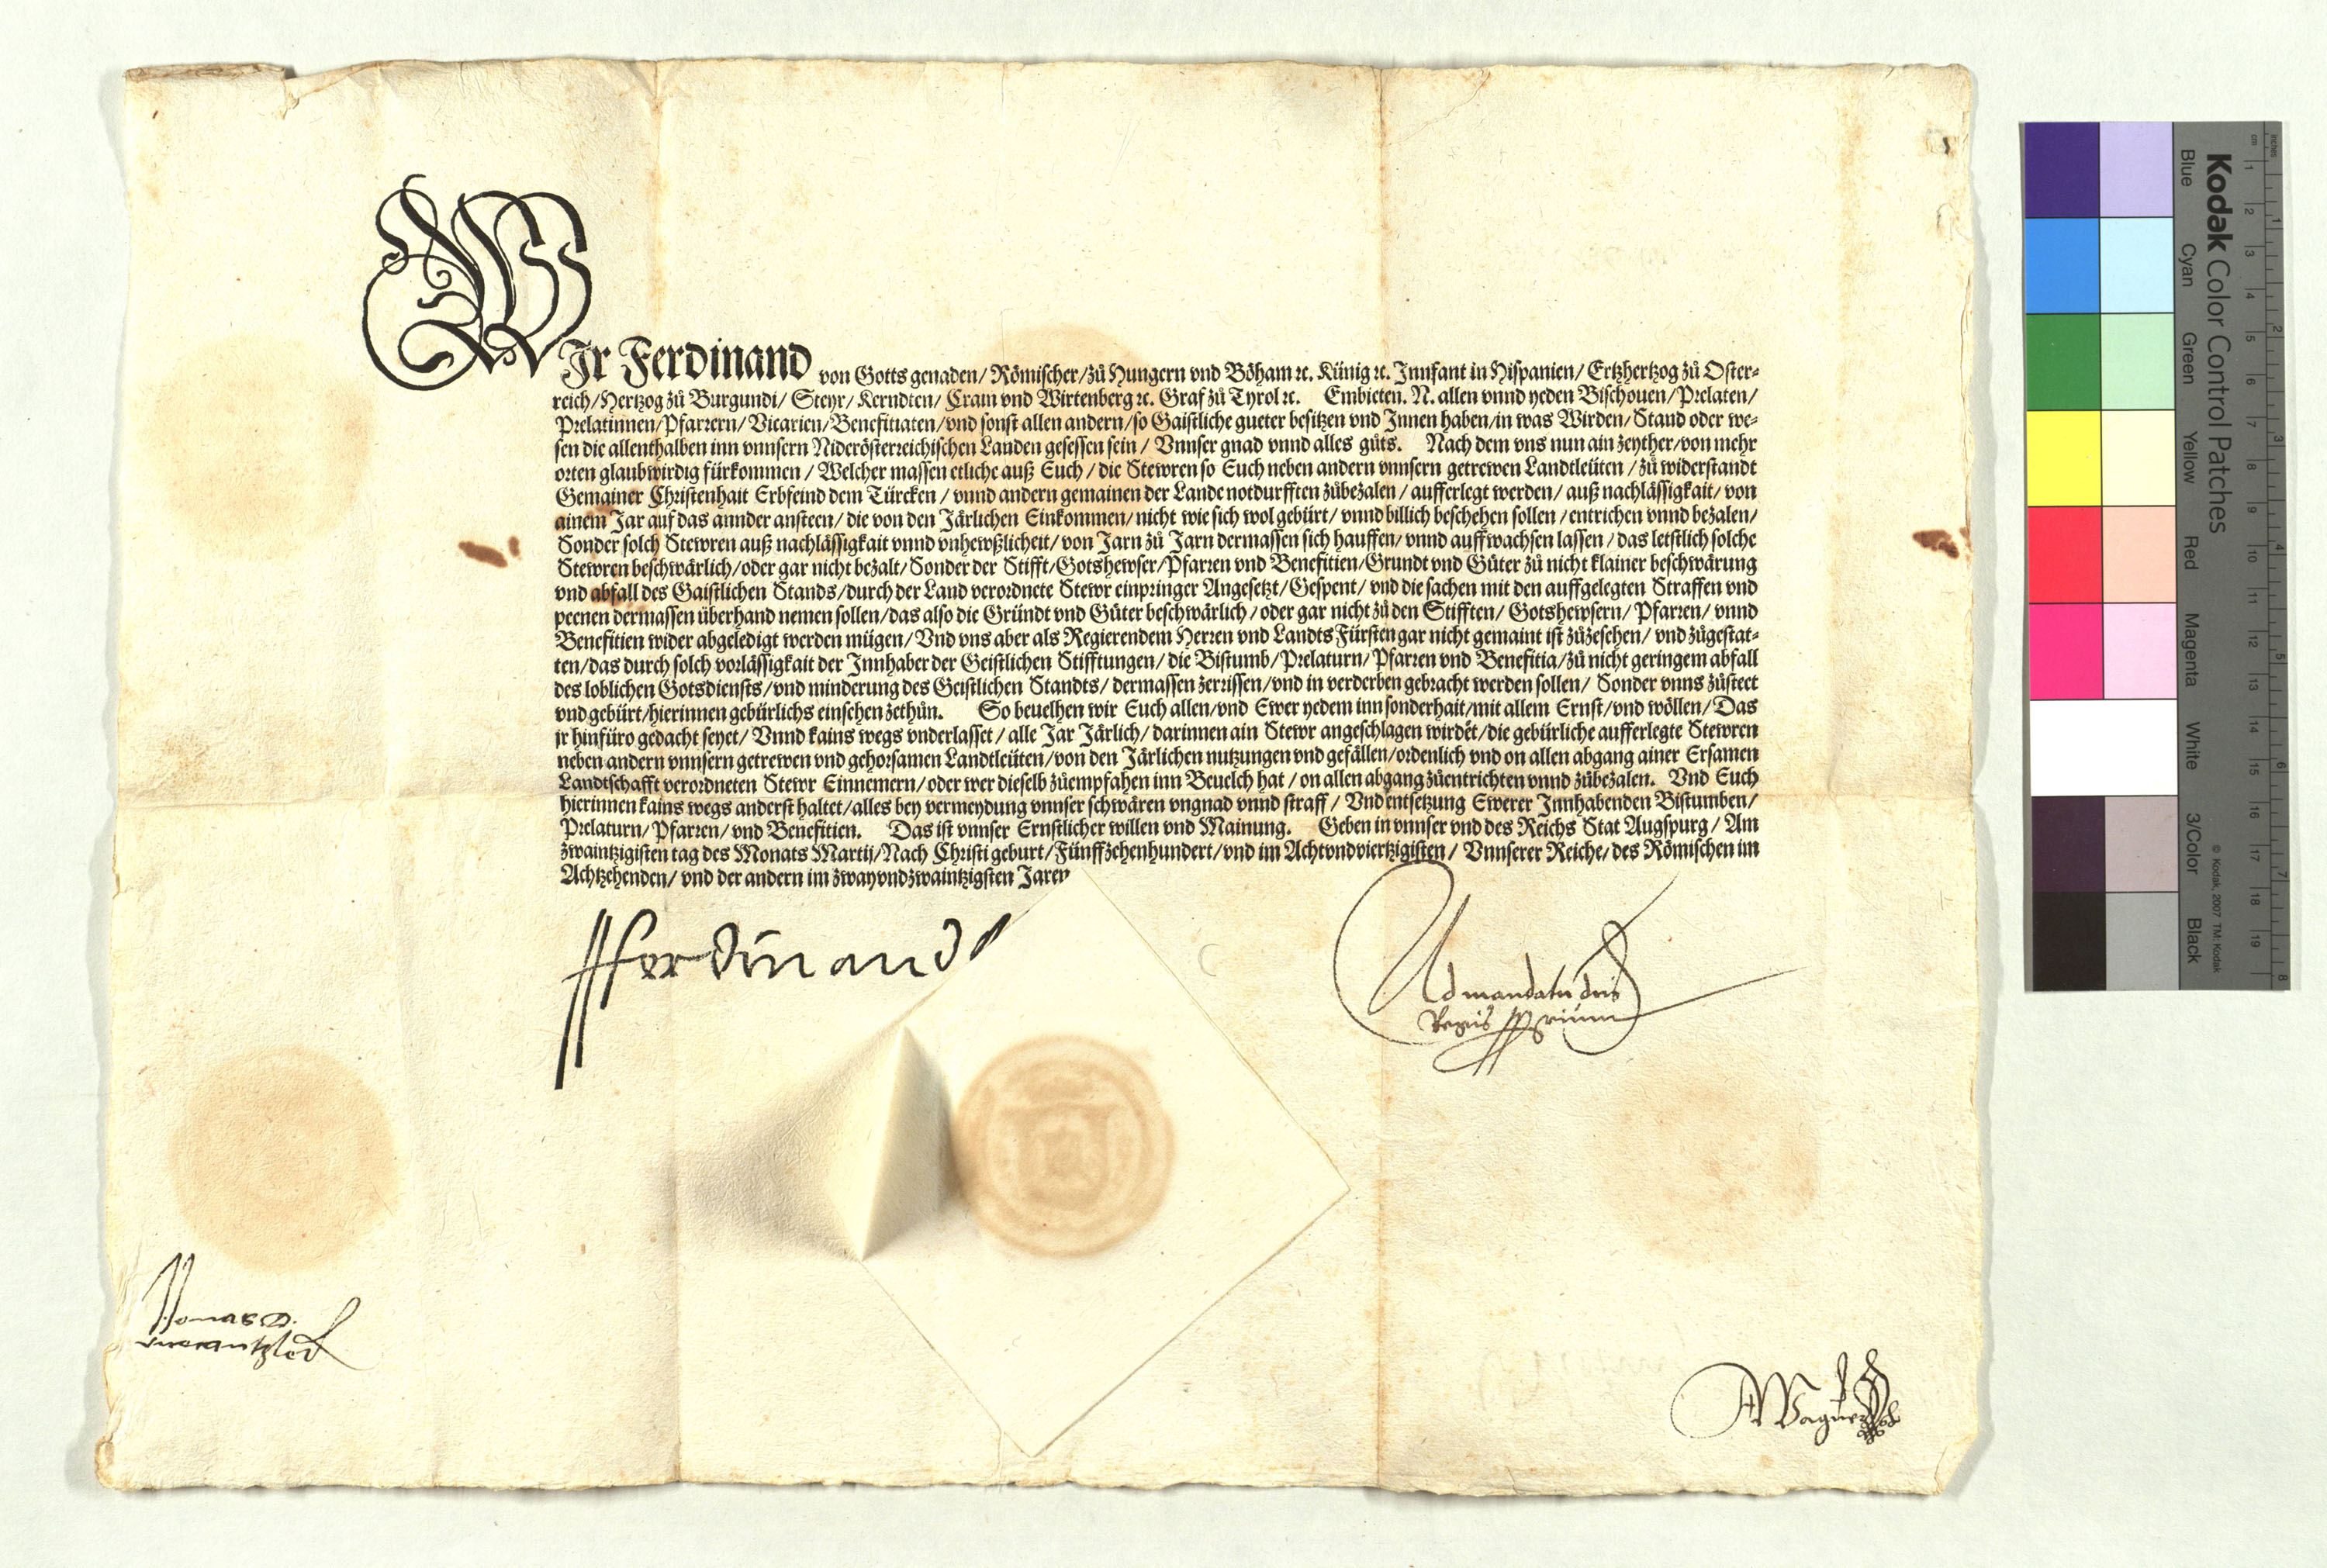 WIr Ferdinand von Gotts genaden/ Römischer/ zů Hungern vnd Böham ꝛc. Künig ꝛc. Innfant in Hispanien/ Ertzhertzog zů Oster⸗
reich/ Hertzog zů Burgundi/ Steyr/ Kerndten/ Crain vnd Wirtenberg ꝛc. Graf zů Tyrol ꝛc. Embieten. N. allen vnnd yeden Bischouen/ Prelaten/
Prelatinnen/ Pfarrern/ Vicarien/ Benefitiaten/ vnd sonst allen andern/ so Gaistliche gueter besitzen vnd Innen haben/ in was Wirden/ Stand oder we⸗
sen die allenthalben inn vnnsern Niderösterreichischen Landen gesessen sein/ Vnnser gnad vnnd alles gůts. Nach dem vns nun ain zeyther/ von mehr
orten glaubwirdig fürkommen/ Welcher massen etliche auß Euch/ die Stewren so Euch neben andern vnnsern getrewen Landtleüten/ zů widerstandt
Gemainer Christenhait Erbfeind dem Türcken/ vnnd andern gemainen der Lande notdurfften zůbezalen/ aufferlegt werden/ auß nachlässigkait/ von
ainem Jar auf das annder ansteen/ die von den Järlichen Einkommen/ nicht wie sich wol gebürt/ vnnd billich beschehen sollen/ entrichen vnnd bezalen/
Sonder solch Stewren auß nachlässigkait vnnd vnhewßlicheit/ von Jarn zů Jarn dermassen sich hauffen/ vnnd auffwachsen lassen/ das letstlich solche
Stewren beschwärlich/ oder gar nicht bezalt/ Sonder der Stifft/ Gotshewser/ Pfarren vnd Benefitien/ Grundt vnd Güter zů nicht klainer beschwärung
vnd abfall des Gaistlichen Stands/ durch der Land verordnete Stewr einpringer Angesetzt/ Gespent/ vnd die sachen mit den auffgelegten Straffen vnd
peenen dermassen überhand nemen sollen/ das also die Gründt vnd Güter beschwärlich/ oder gar nicht zů den Stifften/ Gotshewsern/ Pfarren/ vnnd
Benefitien wider abgeledigt werden mügen/ Vnd vns aber als Regierendem Herren vnd Landts Fürsten gar nicht gemaint ist zůzesehen/ vnd zůgestat⸗
ten/ das durch solch vorlässigkait der Innhaber der Geistlichen Stifftungen/ die Bistumb/ Prelaturn/ Pfarren vnd Benefitia/ zů nicht geringem abfall
des loblichen Gotsdiensts/ vnd minderung des Geistlichen Standts/ dermassen zerrissen/ vnd in verderben gebracht werden sollen/ Sonder vnns zůsteet
vnd gebürt/ hierinnen gebürlichs einsehen zethůn. So beuelhen wir Euch allen/ vnd Ewer yedem inn sonderhait/ mit allem Ernst/ vnd wöllen/ Das
jr hinfüro gedacht seyet/ Vnnd kains wegs vnderlasset/ alle Jar Järlich/ darinnen ain Stewr angeschlagen wirdet/ die gebürliche aufferlegte Stewren
neben andern vnnsern getrewen vnd gehorsamen Landtleüten/ von den Järlichen nutzungen vnd gefällen/ ordenlich vnd on allen abgang ainer Ersamen
Landtschafft verordneten Stewr Einnemern/ oder wer dieselb zůempfahen inn Beuelch hat/ on allen abgang zůentrichten vnnd zůbezalen. Vnd Euch
hierinnen kains wegs anderst haltet/ alles bey vermeydung vnnser schwären vngnad vnnd straff/ Vnd entsetzung Ewerer Innhabenden Bistumben/
Prelaturn/ Pfarren/ vnd Benefitien. Das ist vnnser Ernstlicher willen vnd Mainung. Geben in vnnser vnd des Reichs Stat Augspurg/ Am
zwaintzigisten tag des Monats Martij/ Nach Christi geburt/ Fünffzehenhundert/ vnd im Achtvndviertzigisten/ Vnnserer Reiche/ des Römischen im
Achtzehenden/ vnd der andern im zwayvndzwaintzigsten Jaren
Ferdinand
Ad mandatu dni
Regis
Jonas D.
vicecantzler
Wagner
Kodak Color Control Patches
Blue Cyan Green Yellow Red Magenta White 3/Color Black
© Kodak, 2007 TM: Kodak
inches 1 2 3 4 5 6 7 8
cm 1 2 3 4 5 6 7 8 9 10 11 12 13 14 15 16 17 18 19